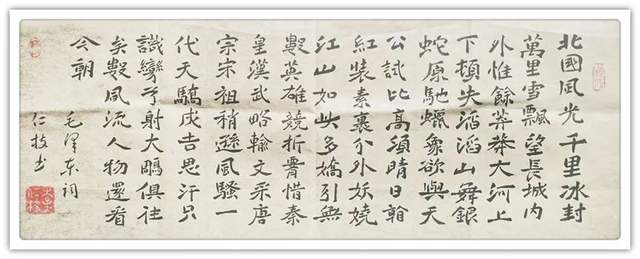 北國風光千里冰封
萬里雪飄望長城内
外惟餘莽莽大河上
下頓失滔滔山舞銀
蛇原馳蠟象欲與天
公試比高須晴日
紅裝素裹分外妖嬈
江山如此多嬌引無
數英雄競折惜秦
皇漢武略輸文采唐
宗宋祖稍遜風騷一
代天驕成吉思汗只
識彎弓射大鵰俱往
矣數風流人物還看
今朝
毛澤東詞
仁技书